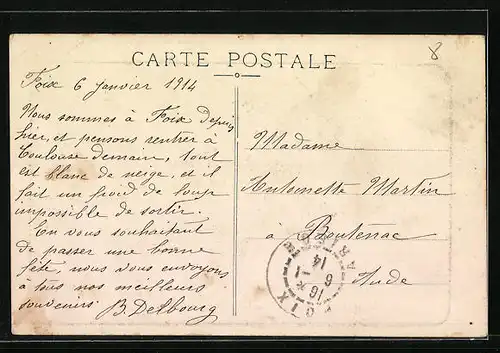 CARTE POSTALE
8
Foix 6 janvier 1914
Nous sommes à Foix depuis
hier, et pensons rentrer à
Toulouse demain, tout
est blanc de neige, et il
fait un froid de loup
impossible de sortir.
En vous souhaitant
de passer une bonne
fête, nous vous envoyons
à tous nos meilleurs
souvenirs B. Delbourg
Madame
Antoinette Martin
à Boutenac
Aude
FOIX
16 *
6 - 1
14